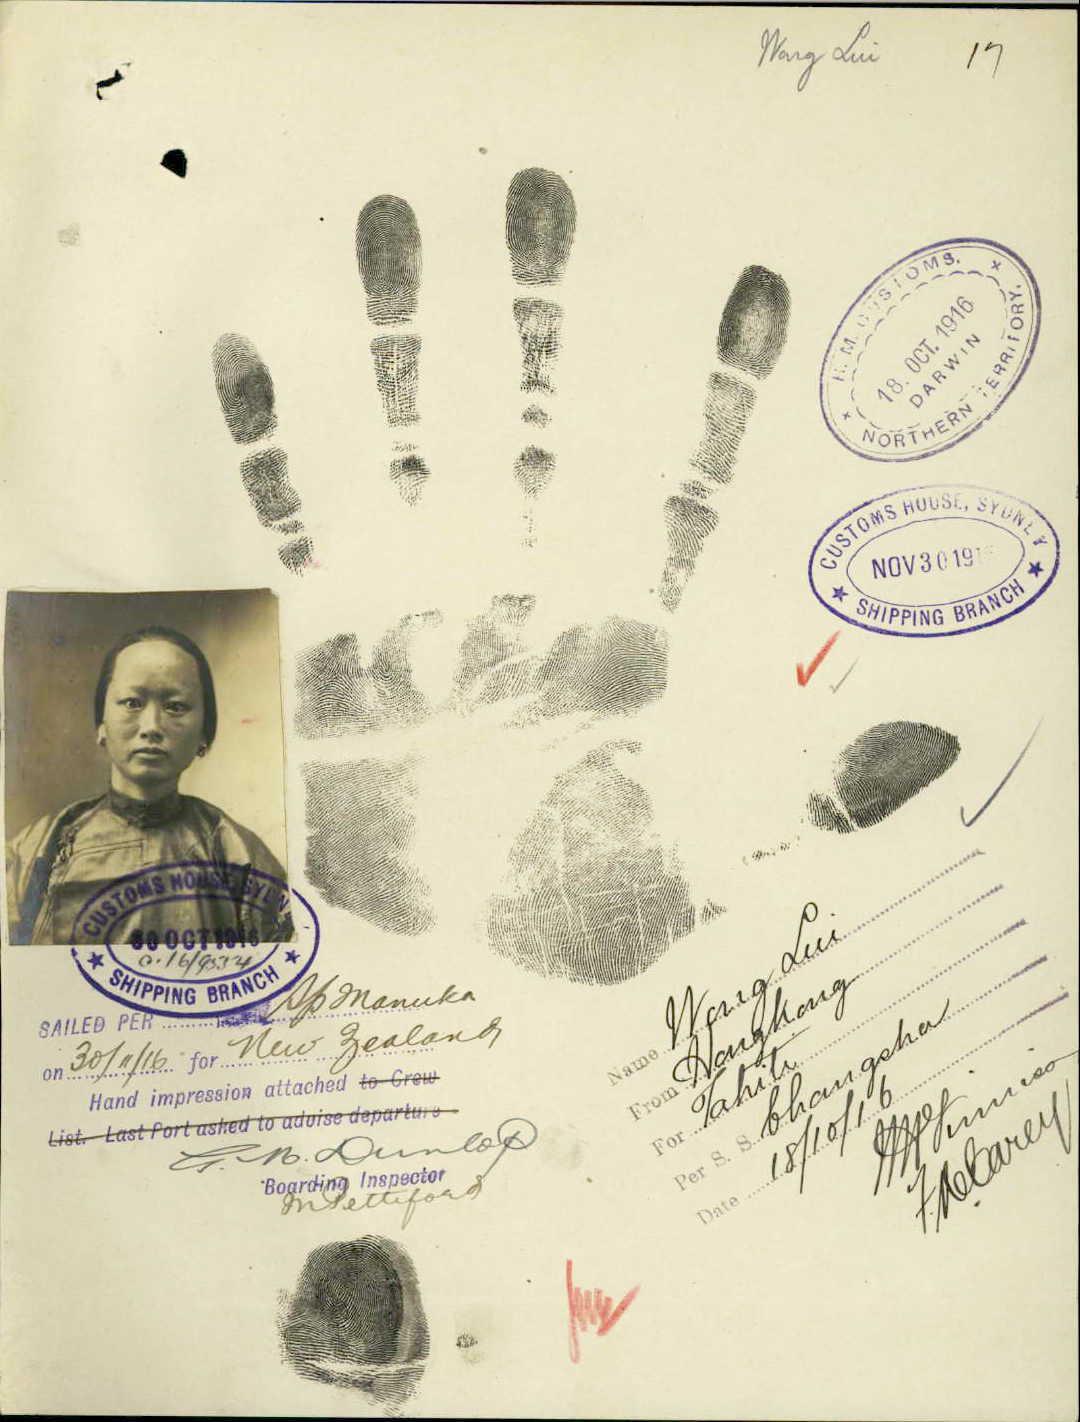 Wang Lui 17
H.M. CUSTOMS.
18. OCT. 1916
DARWIN
NORTHERN TERRITORY.
CUSTOMS HOUSE, SYDNEY
NOV 30 191
SHIPPING BRANCH
CUSTOMS HOUSE, SYDN
30 OCT 1916
C.16/9334
SHIPPING BRANCH
SAILED PER S/S Manuka
on 30/11/16 for New Zealand
Hand impression attached to Crew
List. Last Port asked to advise departure
G. M. Dunlop
Boarding Inspector
M Pettiford
Name Wang Lui
From Hongkong
For Tahiti
Per S. S. Changsha
Date 18/10/16
F. A. Carey